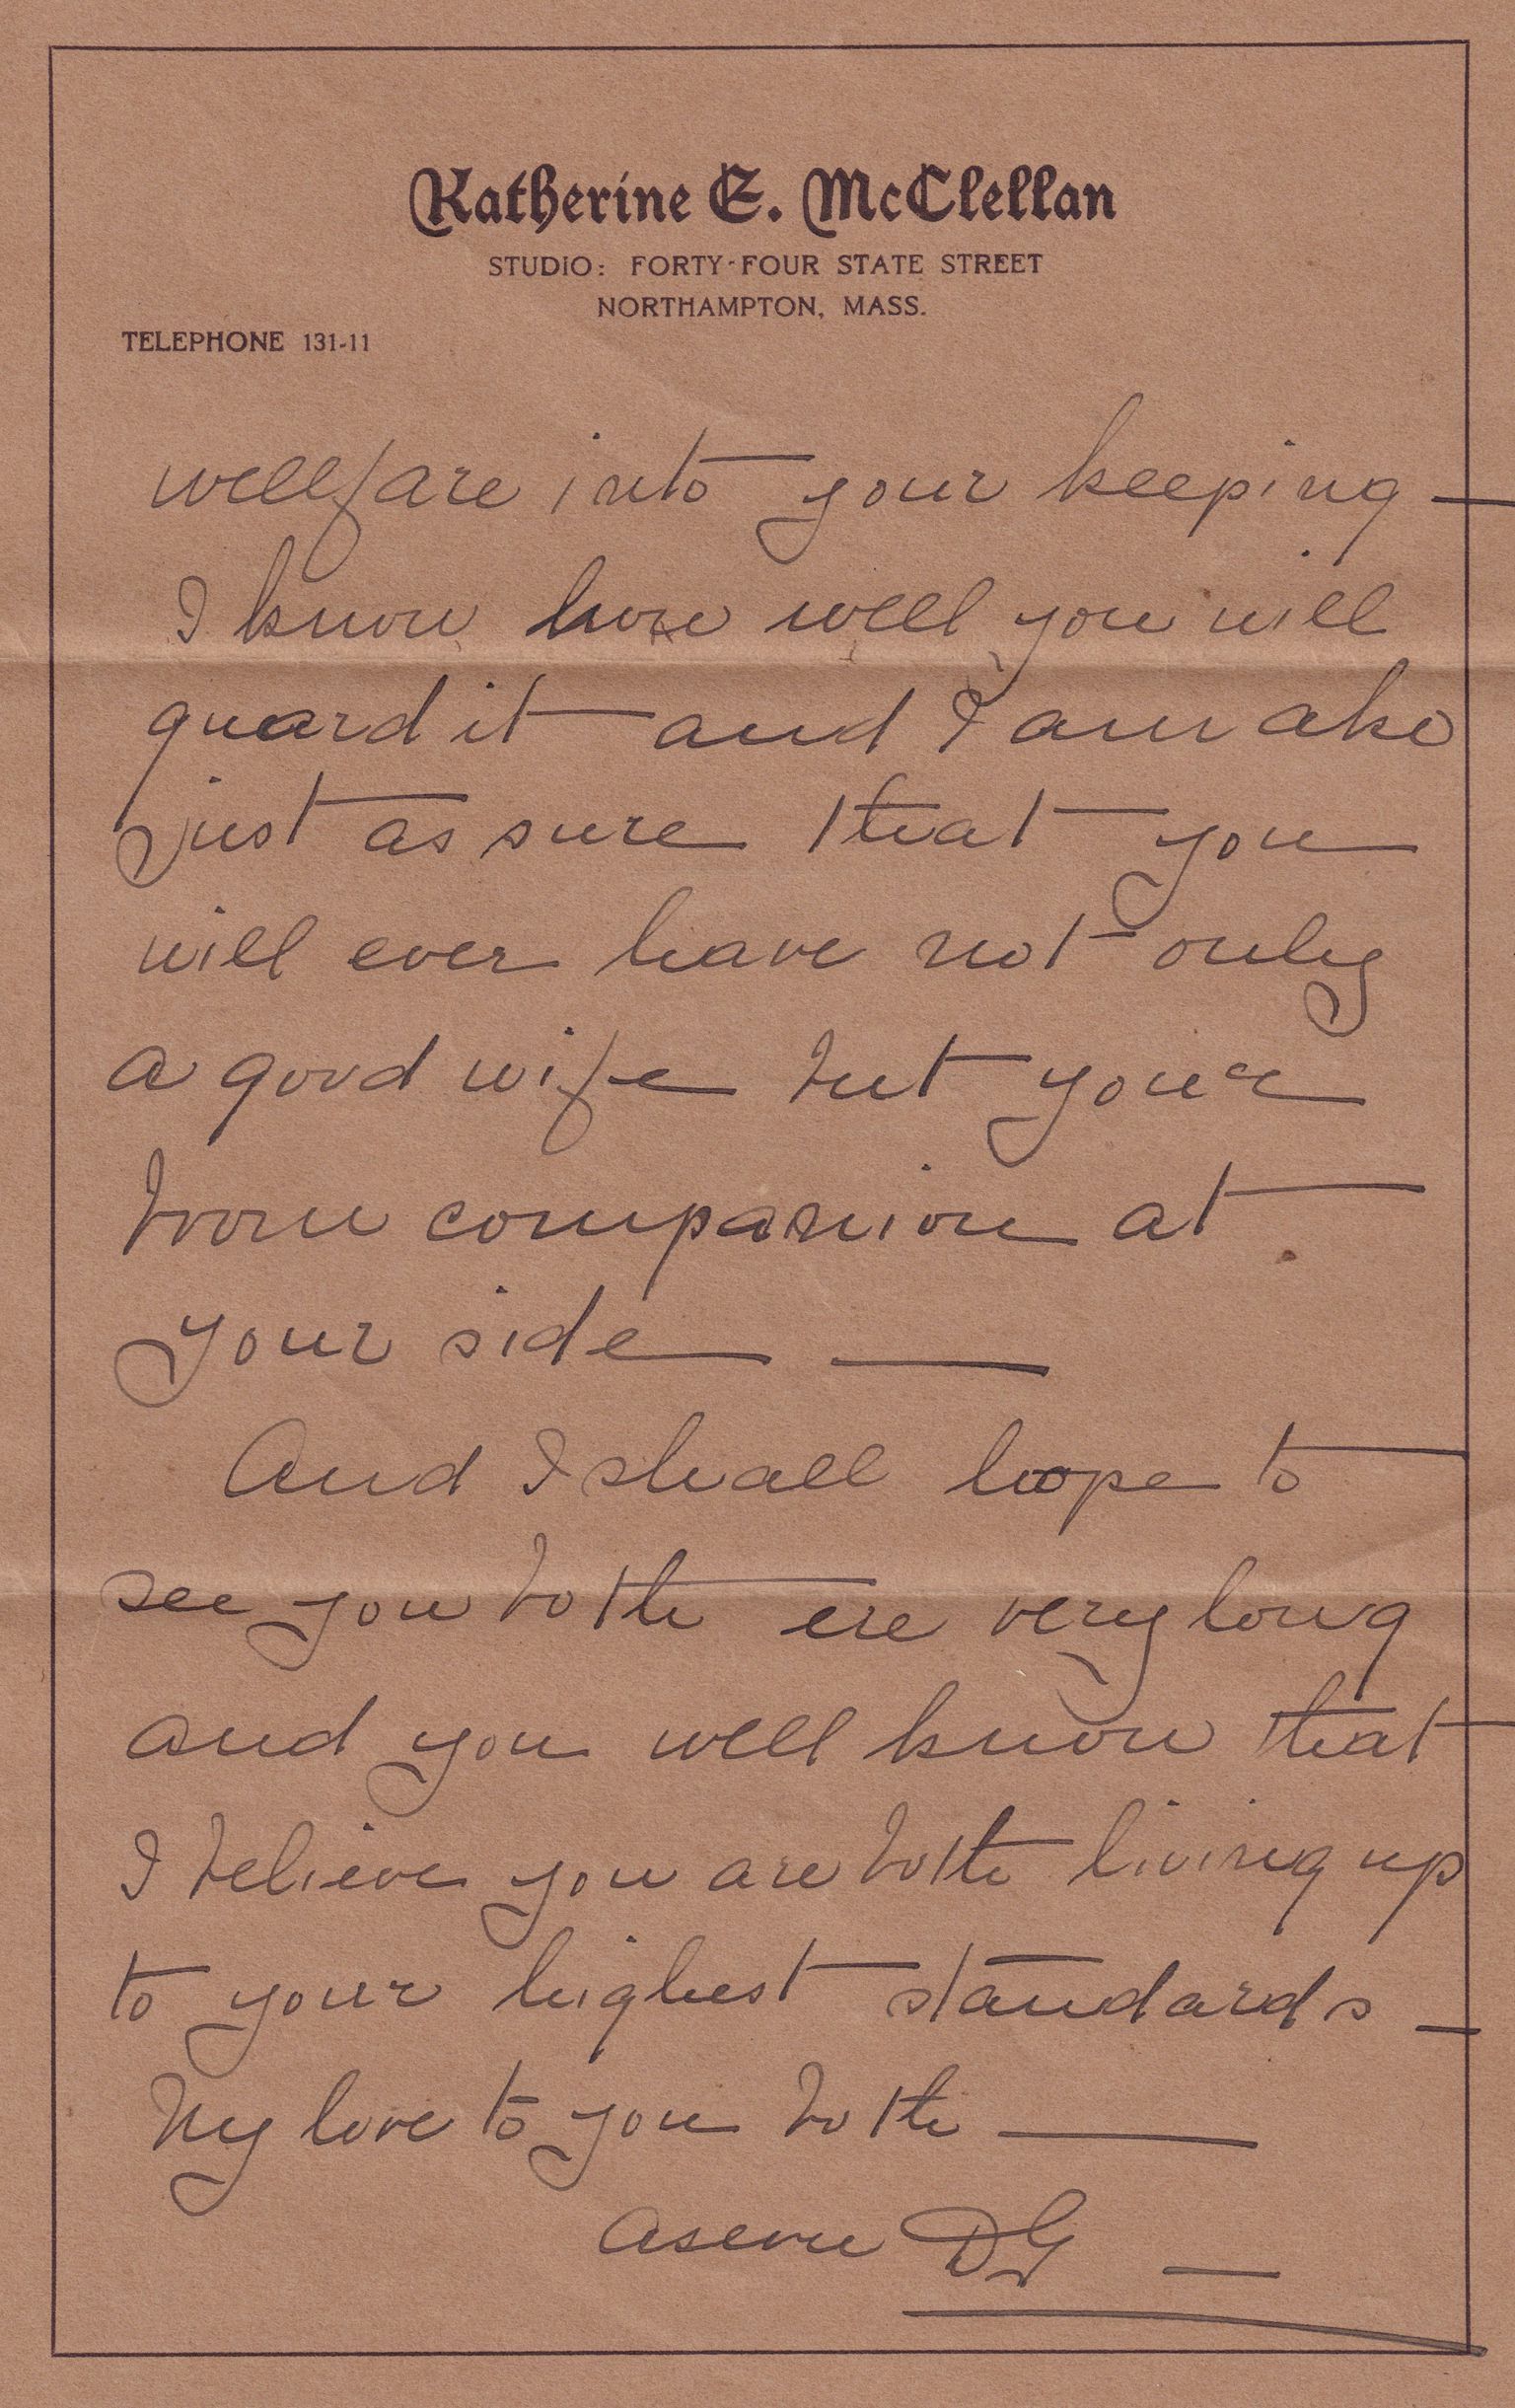 Katherine E. McClellan
STUDIO: FORTY-FOUR STATE STREET
NORTHAMPTON, MASS.
TELEPHONE 131-11
wellfare into your keeping —
I know how well you will
guard it and I am also
just as sure that you
will ever have not only
a good wife but your
boon companion at
your side —
And I shall hope to
see you both ere very long
and you well know that
I believe you are both living up
to your highest standards —
My love to you both —
as ever DG —